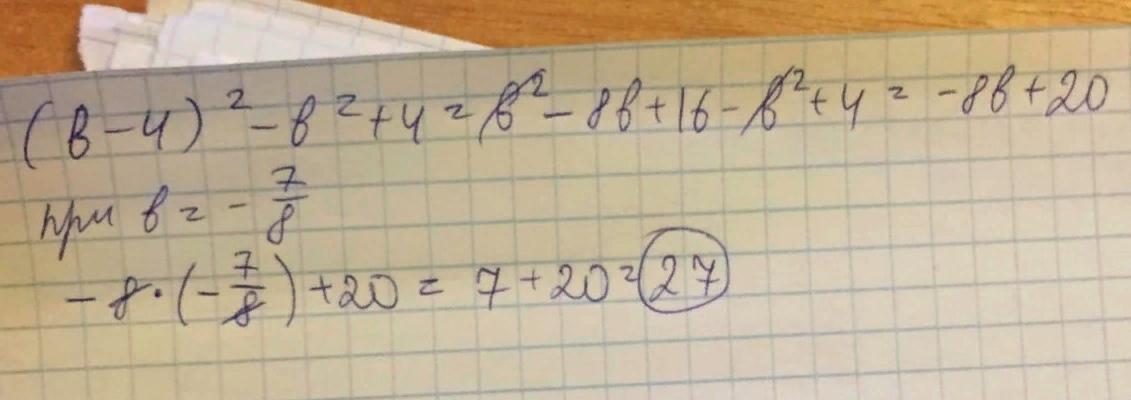 (b-4)² - b² + 4 = b² - 8b + 16 - b² + 4 = -8b + 20
при b = - 7/8
-8·(-7/8) + 20 = 7 + 20 = 27